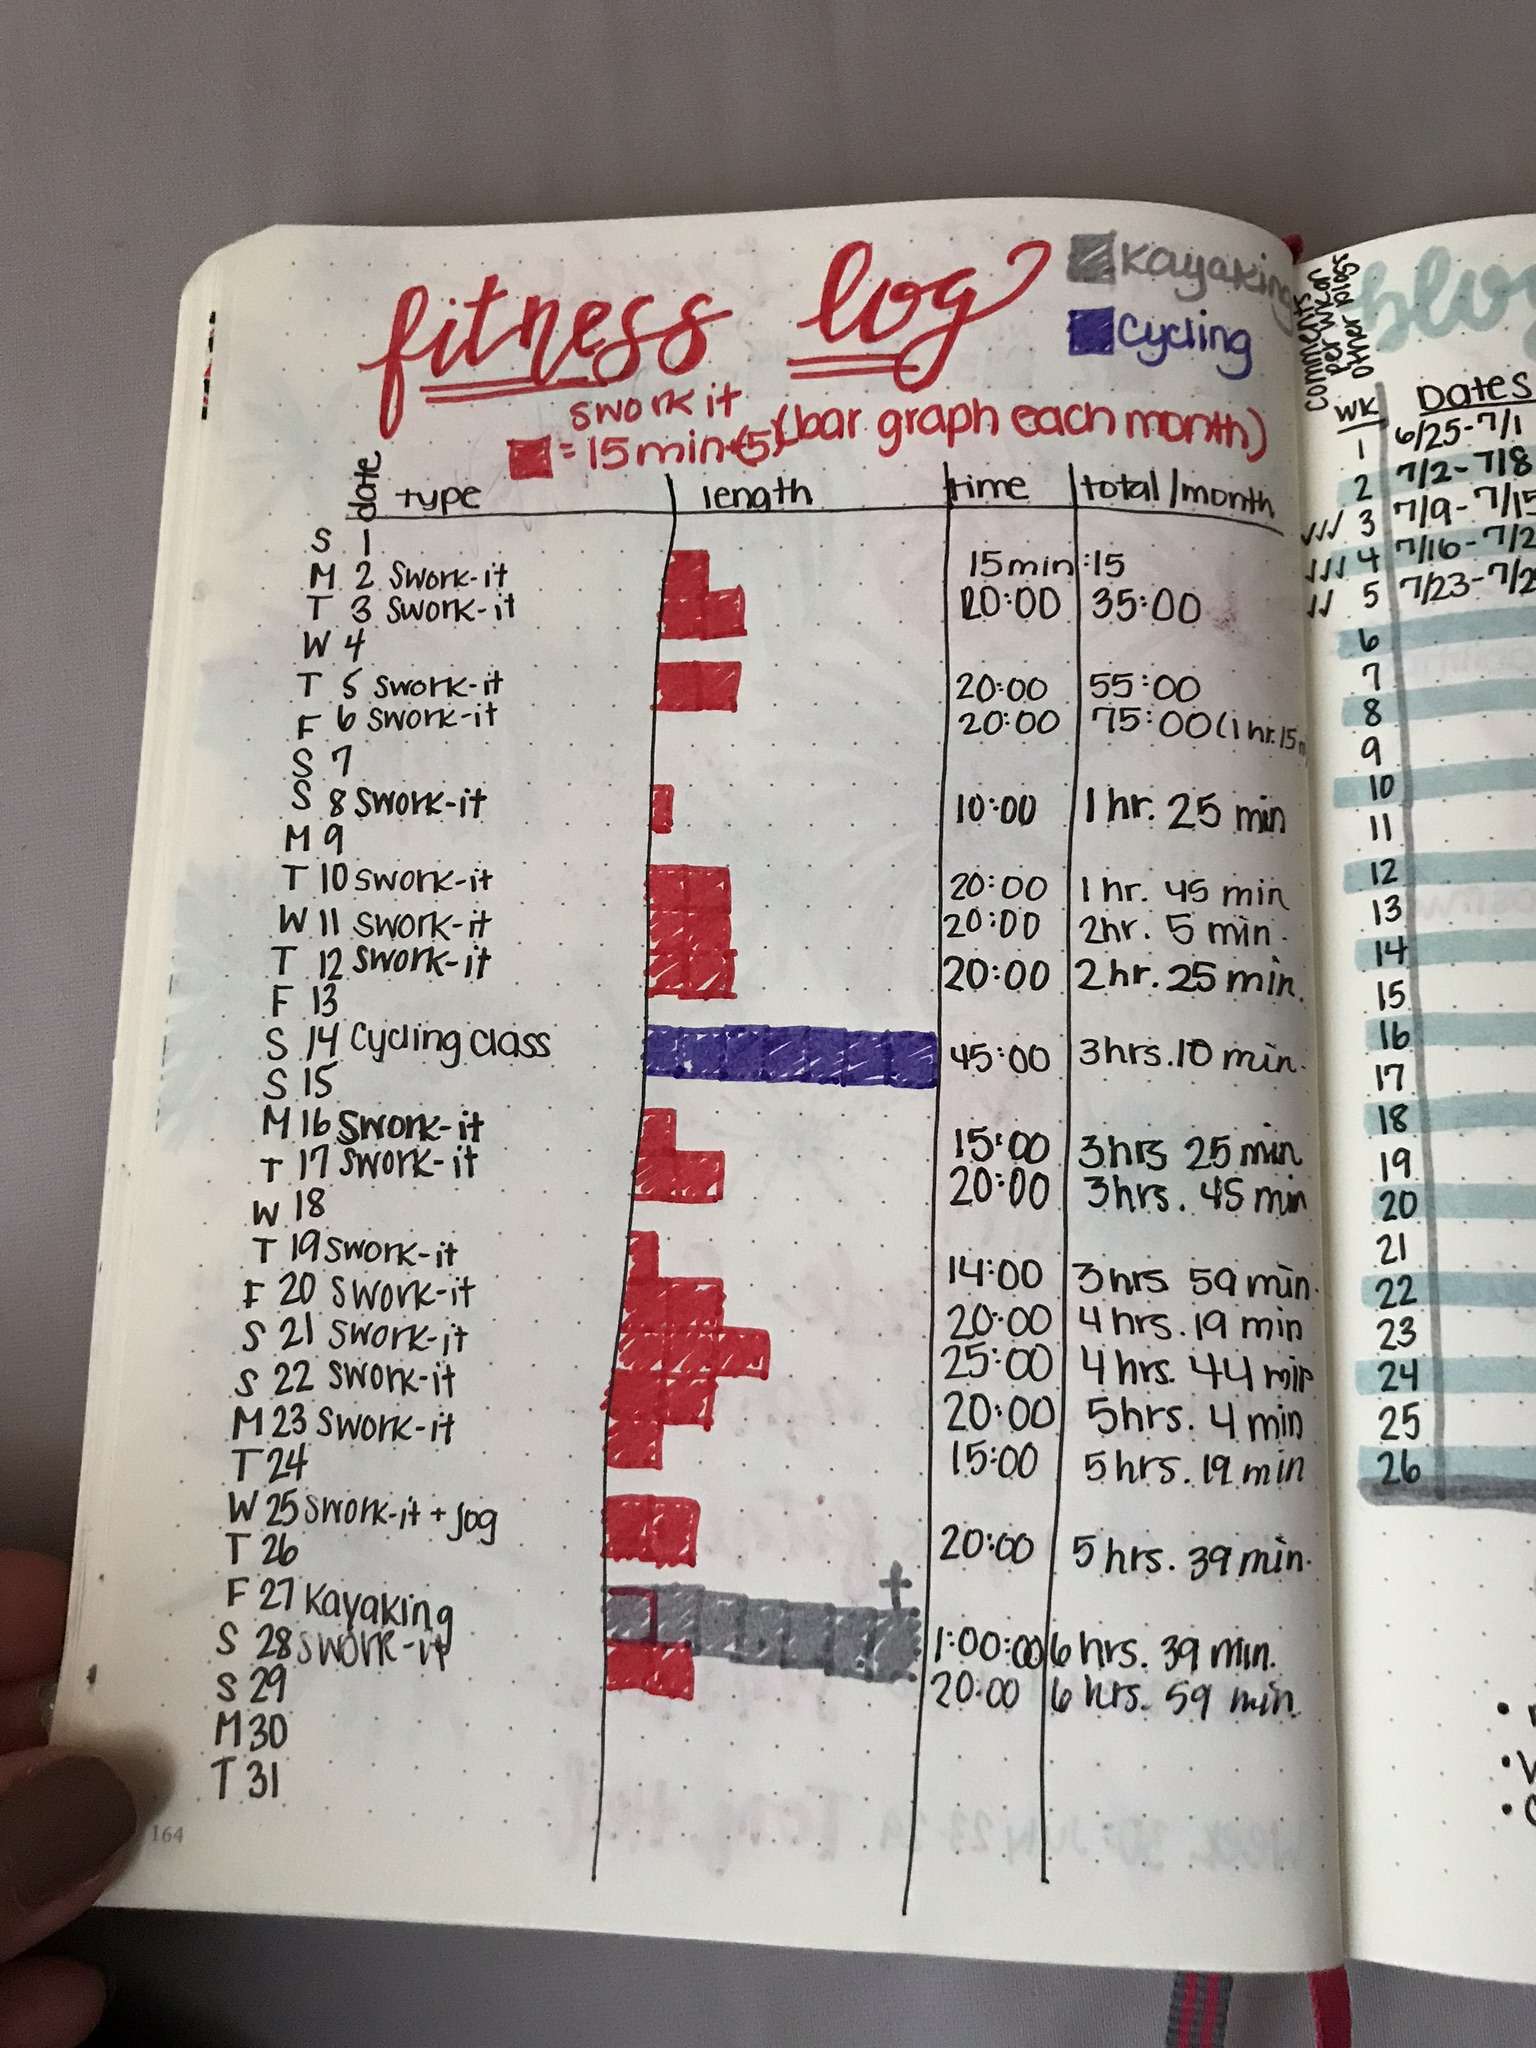 fitness log
Kayaking
Cycling
swork it
= 15 min (5) (bar graph each month)
date type length time total/month
S 1
M 2 Swork-it 15 min :15
T 3 Swork-it 20:00 35:00
W 4
T 5 Swork-it 20:00 55:00
F 6 Swork-it 20:00 75:00 (1 hr. 15
S 7
S 8 Swork-it 10:00 1 hr. 25 min
M 9
T 10 Swork-it 20:00 1 hr. 45 min
W 11 Swork-it 20:00 2hr. 5 min.
T 12 Swork-it 20:00 2 hr. 25 min.
F 13
S 14 Cycling class 45:00 3hrs. 10 min.
S 15
M 16 Swork-it 15:00 3hrs 25 min
T 17 Swork-it 20:00 3hrs. 45 min
W 18
T 19 Swork-it 14:00 3hrs 59 min.
F 20 Swork-it 20:00 4 hrs. 19 min
S 21 Swork-it 25:00 4 hrs. 44 min
S 22 Swork-it 20:00 5hrs. 4 min
M 23 Swork-it 15:00 5 hrs. 19 min
T 24
W 25 Swork-it + jog 20:00 5 hrs. 39 min.
T 26
F 27 Kayaking + 1:00:00 6 hrs. 39 min.
S 28 Swork-it 20:00 6 hrs. 59 min.
S 29
M 30
T 31
164
blog
comments
per wk on
other blogs
WK Dates
1 6/25-7/1
2 7/2-7/8
✓✓✓ 3 7/9-7/15
✓✓✓ 4 7/16-7/2
✓✓ 5 7/23-7/2
6
7
8
9
10
11
12
13
14
15
16
17
18
19
20
21
22
23
24
25
26